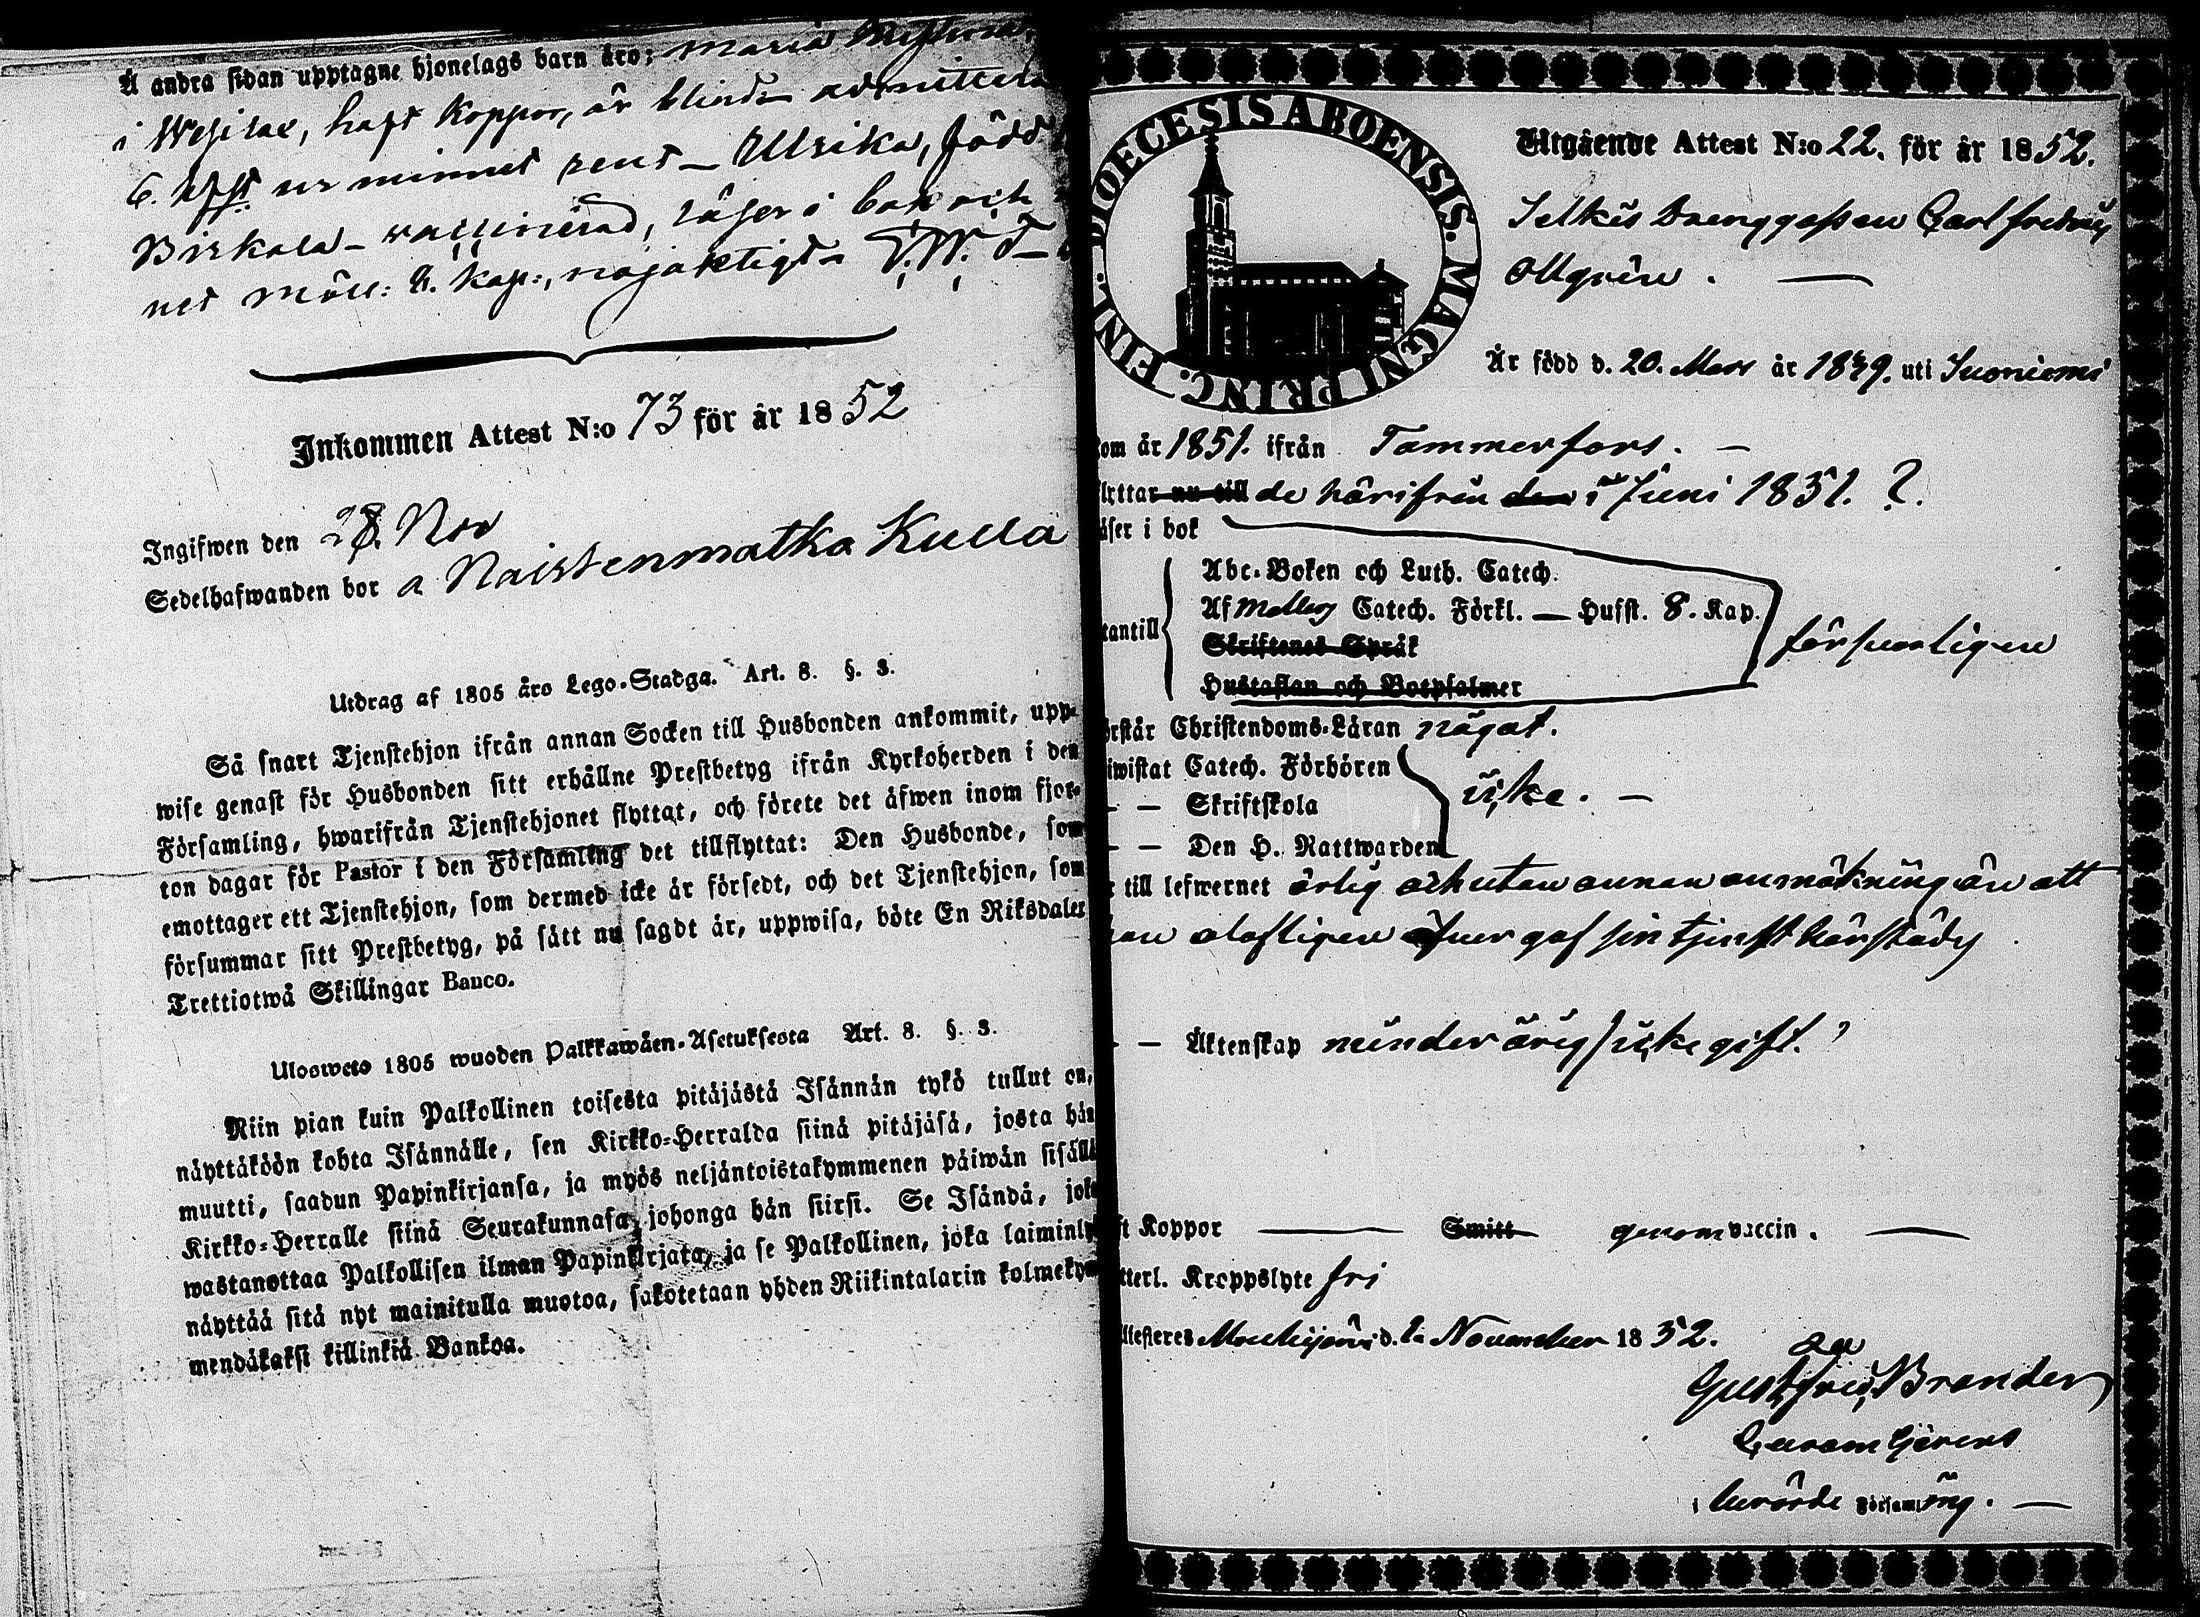 Å andra sidan upptagne hjonelags barn äro: Maria
i Wesilax, haft koppor, är blind admitterad
6. Hfst. ur minnet rent – Ulrika, född
Birkala – vaccinerad, läser i bok och
net Möll: 2. kap:, nöjaktigt – T. W. T –
Inkommen Attest N:o 73 för år 1852
Ingifwen den 28. Nov
Sedelhafwanden bor a Naistenmatka Kulla
Utdrag af 1805 års Lego-Stadga. Art. 8. §. 3.
Så snart Tjenstehjon ifrån annan Socken till Husbonden ankommit, upp-
wise genast för Husbonden sitt erhållne Prestbetyg ifrån Kyrkoherden i den
Församling, hwarifrån Tjenstehjonet flyttat, och förete det äfwen inom fjor-
ton dagar för Pastor i den Församling det tillflyttat: Den Husbonde, som
emottager ett Tjenstehjon, som dermed icke är försedt, och det Tjenstehjon, som
försummar sitt Prestbetyg, på sätt nu sagdt är, uppwisa, böte En Riksdaler
Trettiotwå Skillingar Banco.
Ulosweto 1805 wuoden Palkkawäen-Asetuksesta Art. 8. §. 3.
Niin pian kuin Palkollinen toisesta pitäjästä Isännän tykö tullut on,
näyttäköön kohta Isännälle, sen Kirkko-Herralda siinä pitäjäsä, josta hän
muutti, saadun Papinkirjansa, ja myös neljäntoistakymmenen päiwän sisällä
Kirkko-Herralle siinä Seurakunnasa, johonga hän siirsi. Se Isändä, joka
wastanottaa Palkollisen ilman Papinkirjata, ja se Palkollinen, joka laiminly
näyttää sitä nyt mainitulla muotoa, sakotetaan yhden Riikintalarin kolmekym
mendäkaksi killinkiä Bankoa.
DIOECESIS ABOENSIS. MAGNI PRINC. FINL.
Utgående Attest N:o 22. för år 1852.
Selkis Drenggossen Carl Fredric
Allgrén. —
Är född d. 20. Mars år 1839. uti Suoniemi
om år 1851. ifrån Tammerfors. —
flyttar nu till de härifrån den i Juni 1851. ?.
äser i bok
Abc-Boken och Luth. Catech.
tantill Af Mallbrg Catech. Förkl. — Husst. 8. Kap.
Skriftenes Språk
Hustaflan och Botpsalmer
försvarligen
rstår Christendoms-Läran något.
iwistat Catech. Förhören
– – Skriftskola icke. —
– – Den H. Nattwarden
till lefwernet ärlig och utan annan anmärkning än att
han olofligen öfvergaf sin tjenst härstädes
– – Äktenskap minderårig / icke gift.
ft Koppor — Smitt genom vaccin. —
tterl. Kroppslyte fri
llesteres Mouhijärvi d. 2. November 1852.
Gust. Fried. Brander
i berörde Församling. —